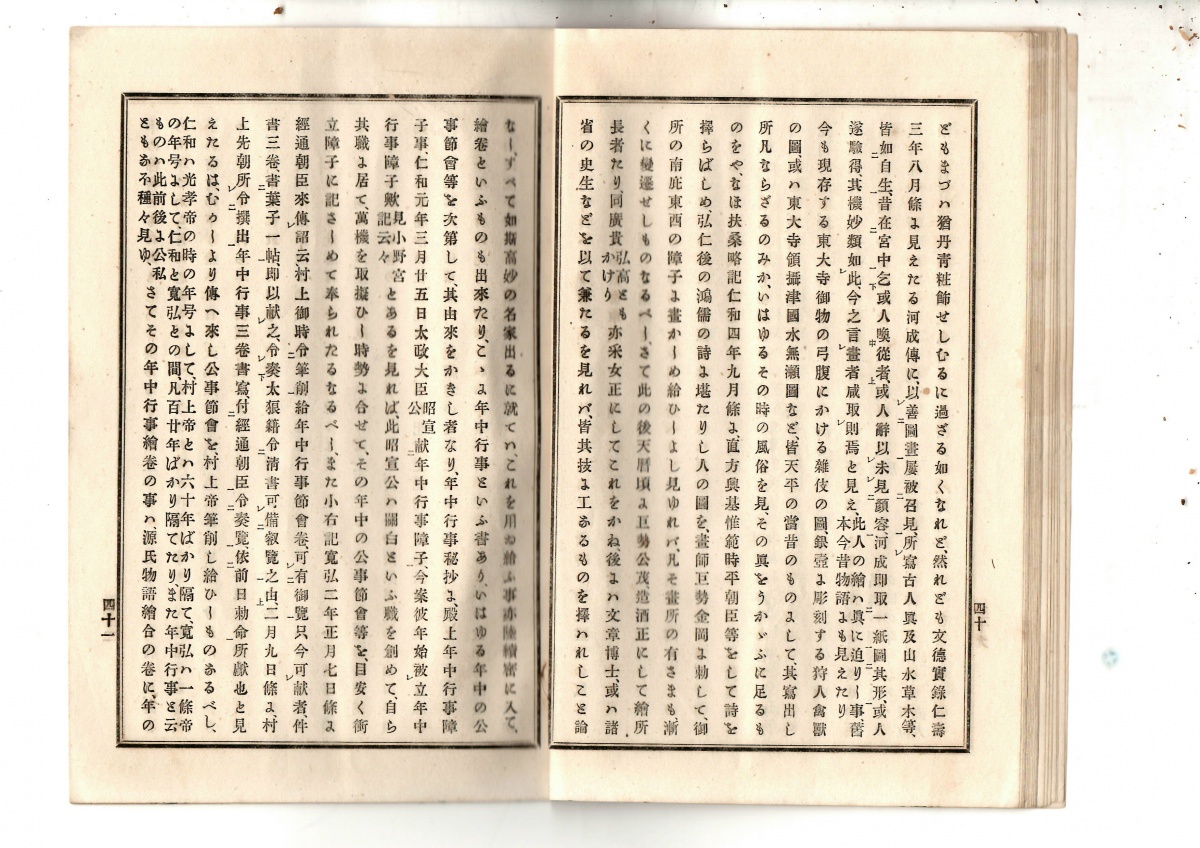 どもまづハ猶丹青粧飾せしむるに過ざる如くなれど、然れども文德實錄仁壽
三年八月條よ見えたる河成傳に、以善圖畫屢被召見、所寫古人眞及山水草木等、
皆如自生、昔在宮中乞或人喚從者、或人辭以未見顏容河成卽取一紙圖其形、或人
遂驗得其機妙類如此、今之言畫者咸取則焉と見え、此人の繪ハ眞に迫りし事舊
本今昔物語よも見えたり
今も現存する東大寺御物の弓腹にかける雜伎の圖、銀壺よ彫刻する狩人禽獸
の圖、或ハ東大寺領攝津國水無瀨圖など、皆天平の當昔のものよして、其寫出し
所凡ならざるのみか、いはゆるその時の風俗を見、その眞をうかゞふに足るも
のをや、なほ扶桑略記仁和四年九月條よ、直方興基惟範時平朝臣等をして詩を
擇らばしめ、弘仁後の鴻儒の詩よ堪たりし人の圖を、畫師巨勢金岡よ勅して、御
所の南庇東西の障子よ畫かしめ給ひしよし見ゆれバ、凡そ畫所の有さまも、漸
くに變遷せしものなるべし、さて此の後天曆頃よ巨勢公茂、造酒正にして繪所
長者たり、同廣貴弘高ともかけり亦釆女正にしてこれをかね、後よハ文章博士、或ハ諸
省の史生などを以て兼たるを見れバ、皆其技よ工あるものを擇ハれしこと論
四十
なし、すべて如斯高妙の名家出るに就てハ、これを用ゐ給ふ事亦陸續密に入て、
繪卷といふものも出來たり、こゝよ年中行事といふ書あり、いはゆる年中の公
事節會等を次第して、其由來をかきし者なり、年中行事秘抄よ、殿上年中行事障
子事、仁和元年三月廿五日太政大臣昭宣公献年中行事障子、今案彼年始被立年中
行事障子歟見小野宮記云々とあるを見れば、此昭宣公ハ關白といふ職を創めて、自ら
其職よ居て、萬機を取擬ひし時勢よ合せて、その年中の公事節會等を、目安く衝
立障子に記さしめて奉られたるなるべし、また小右記寬弘二年正月七日條よ
經通朝臣來傳詔云村上御時令筆削給年中行事節會卷可有御覽只今可献者件
書三卷、書葉子一帖、卽以献之、令奏太狼籍令淸書可備叡覽之由、二月九日條よ、村
上先朝所令撰出年中行事三卷書寫、付經通朝臣令奏覽依前日勅命所獻也と見
えたるは、むかしより傳へ來し公事節會を、村上帝筆削し給ひしものあるべし、
仁和ハ光孝帝の時の年号よして、村上帝とハ六十年ばかり隔て、寬弘ハ一條帝
の年号よして仁和と寬弘との間凡百廿年ばかり隔てたり、また年中行事と云
ものハ此前後よ公私ともあか種々見ゆ、さてその年中行事繪卷の事ハ源氏物語繪合の卷に、年の
四十一